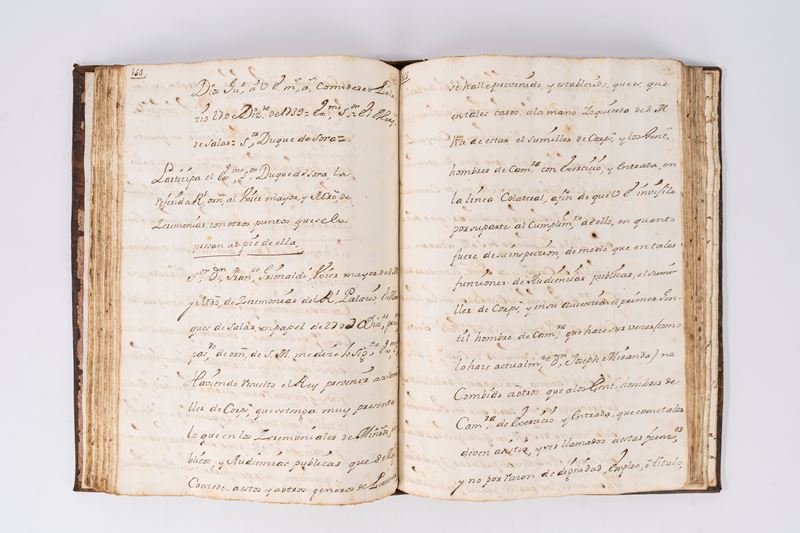 158.
Dio. Gu.e á V. E. m.s a.s como deseo. Pala-
cio 27 de Diz.re de 1739 = Ex.mo S.or = El Marq.
de Salas = S.r Duque de Sora =
Participa el Ex.mo S.or Duque de Sora, la
referida R.l orñ. al Uxier mayor, y Mrõ. de
Zeremonias, con otros puntos que se ex-
presan al pie de ella
S.or Dn. Fran.co Grimaldi, Uxier mayor de S. M.
y Mrõ. de Zeremonias del R.l Palacio, El Mar-
ques de Salas, en papel de 27 de Diz.re
pas.do de orñ. de S. M. me dize lo sig.te
Haviendo resuelto el Rey prevenir
ller de Corps, que se tenga muy presente
lo que en los Zeremoniales de
blicos, y Audiencias publicas que
Concede, a estos y a otros generos de
se halle prevenido, y establecido, que es, que
en tales casos, a la mano Izquierda de S. M.
ha de estar el sumiller de Corps, y los Gent.s
hombres de Cam.ra con Exercicio, y Entrada, en
la linea Colateral, a fin de que V. E. invigile
por su parte al Cumplim.to de ello, en quanto
fuere de su inspeccion, de modo que en tales
funciones de Audiencias publicas, el sumi-
ller de Corps, y en su ausencia el primer Gen-
til hombre de Cam.ra que haze sus vezes (como
lo haze actualm.te Dn. Joseph Miranda) no
Combide a otros que a los Gent. hombres de
Cam.ra de Exercicio y Entrada, que como tales
deven asistir, y ser llamados a estas funz.es
y no por razon de dignidad, Empleo, o titulo